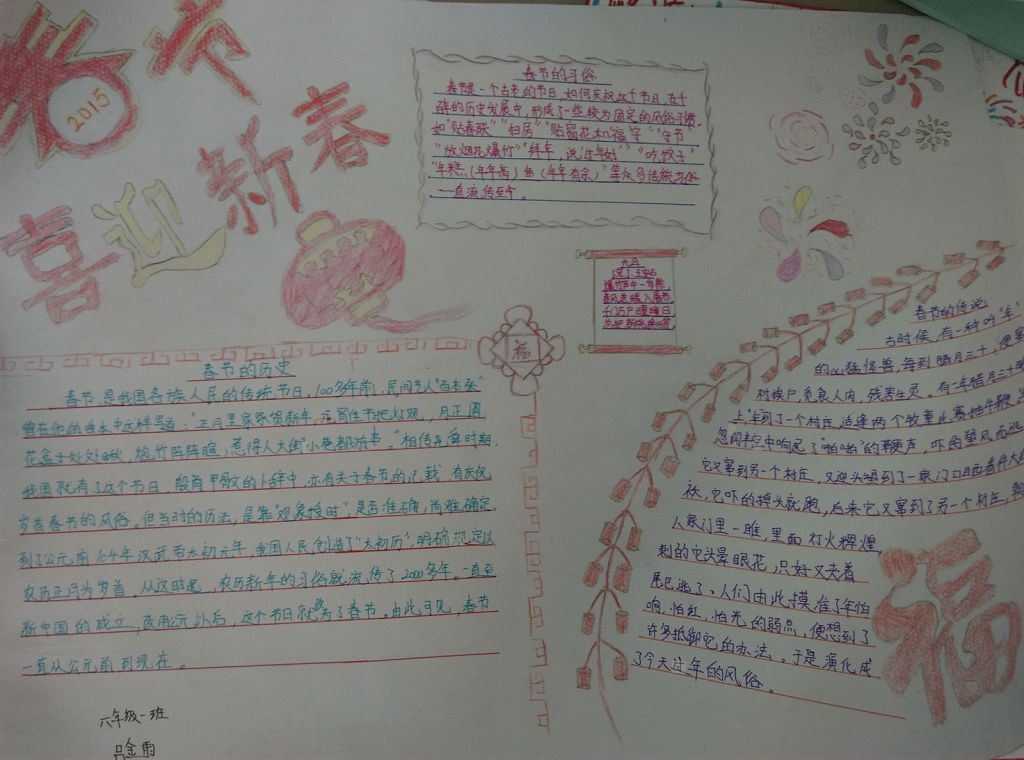 春节
2015
喜迎新春
春节的习俗
春节是一个古老的节日,如何庆祝这个节日,在千
的历史发展中,形成了一些较为固定的风俗习惯,
如"贴春联""扫房""贴窗花和"福"字""守
"放烟花爆竹""拜年,说'过年好'""吃饺子"
年糕(年年高)鱼(年年有余)"等众多传统习俗
一直流传至今。
元日
爆竹声中一岁除
春风送暖入屠苏
千门万户曈曈日
总把新桃换旧符
福
春节的历史
春节,是我国各族人民的传统节日,100多年前,民间艺人"百本张"
曾在他的唱本中这样写道:"正月里家家贺新年,元宵佳节把灯观,月正圆
花盒子处处瞅,炮竹阵阵喧,惹得人大街小巷都游串。"相传
我国就有了这个节日,殷商甲骨文的卜辞中,亦有关于春节的记载,有庆祝
岁首春节的风俗。但当时的历法,是靠"观象授时",是否准确,尚难确定。
到了公元前104年汉武帝太初元年,我国人民创造了"太初历",明确规定以
农历正月为岁首,从这时起,农历新年的习俗就流传了2000多年。一直至
新中国的成立,改用公元以后,这个节日就改为了春节。由此可见,春节
一直从公元前到现在。
六年级一班
吕金雨
春节的传说
古时候,有一种叫"年"
的凶猛怪兽,每到腊月三十,便窜
村挨户,觅食人肉,残害生灵。有一年腊月三十晚
上,"年"到了一个村庄,适逢两个牧童比赛抽牛鞭
忽闻半空中响起了"啪啪"的鞭声,吓的望风而逃
它又窜到另一个村庄,又迎头望到了一家门口晒着件大红
袄,它吓的掉头就跑,后来它又窜到了另一个村庄,
人家门里一瞧,里面灯火辉煌,
刺的它头晕眼花,只好又夹着
尾巴逃了。人们由此摸准了年怕
响,怕红,怕光的弱点,便想到了
许多抵御它的办法。于是演化成
了今天过年的风俗。
福